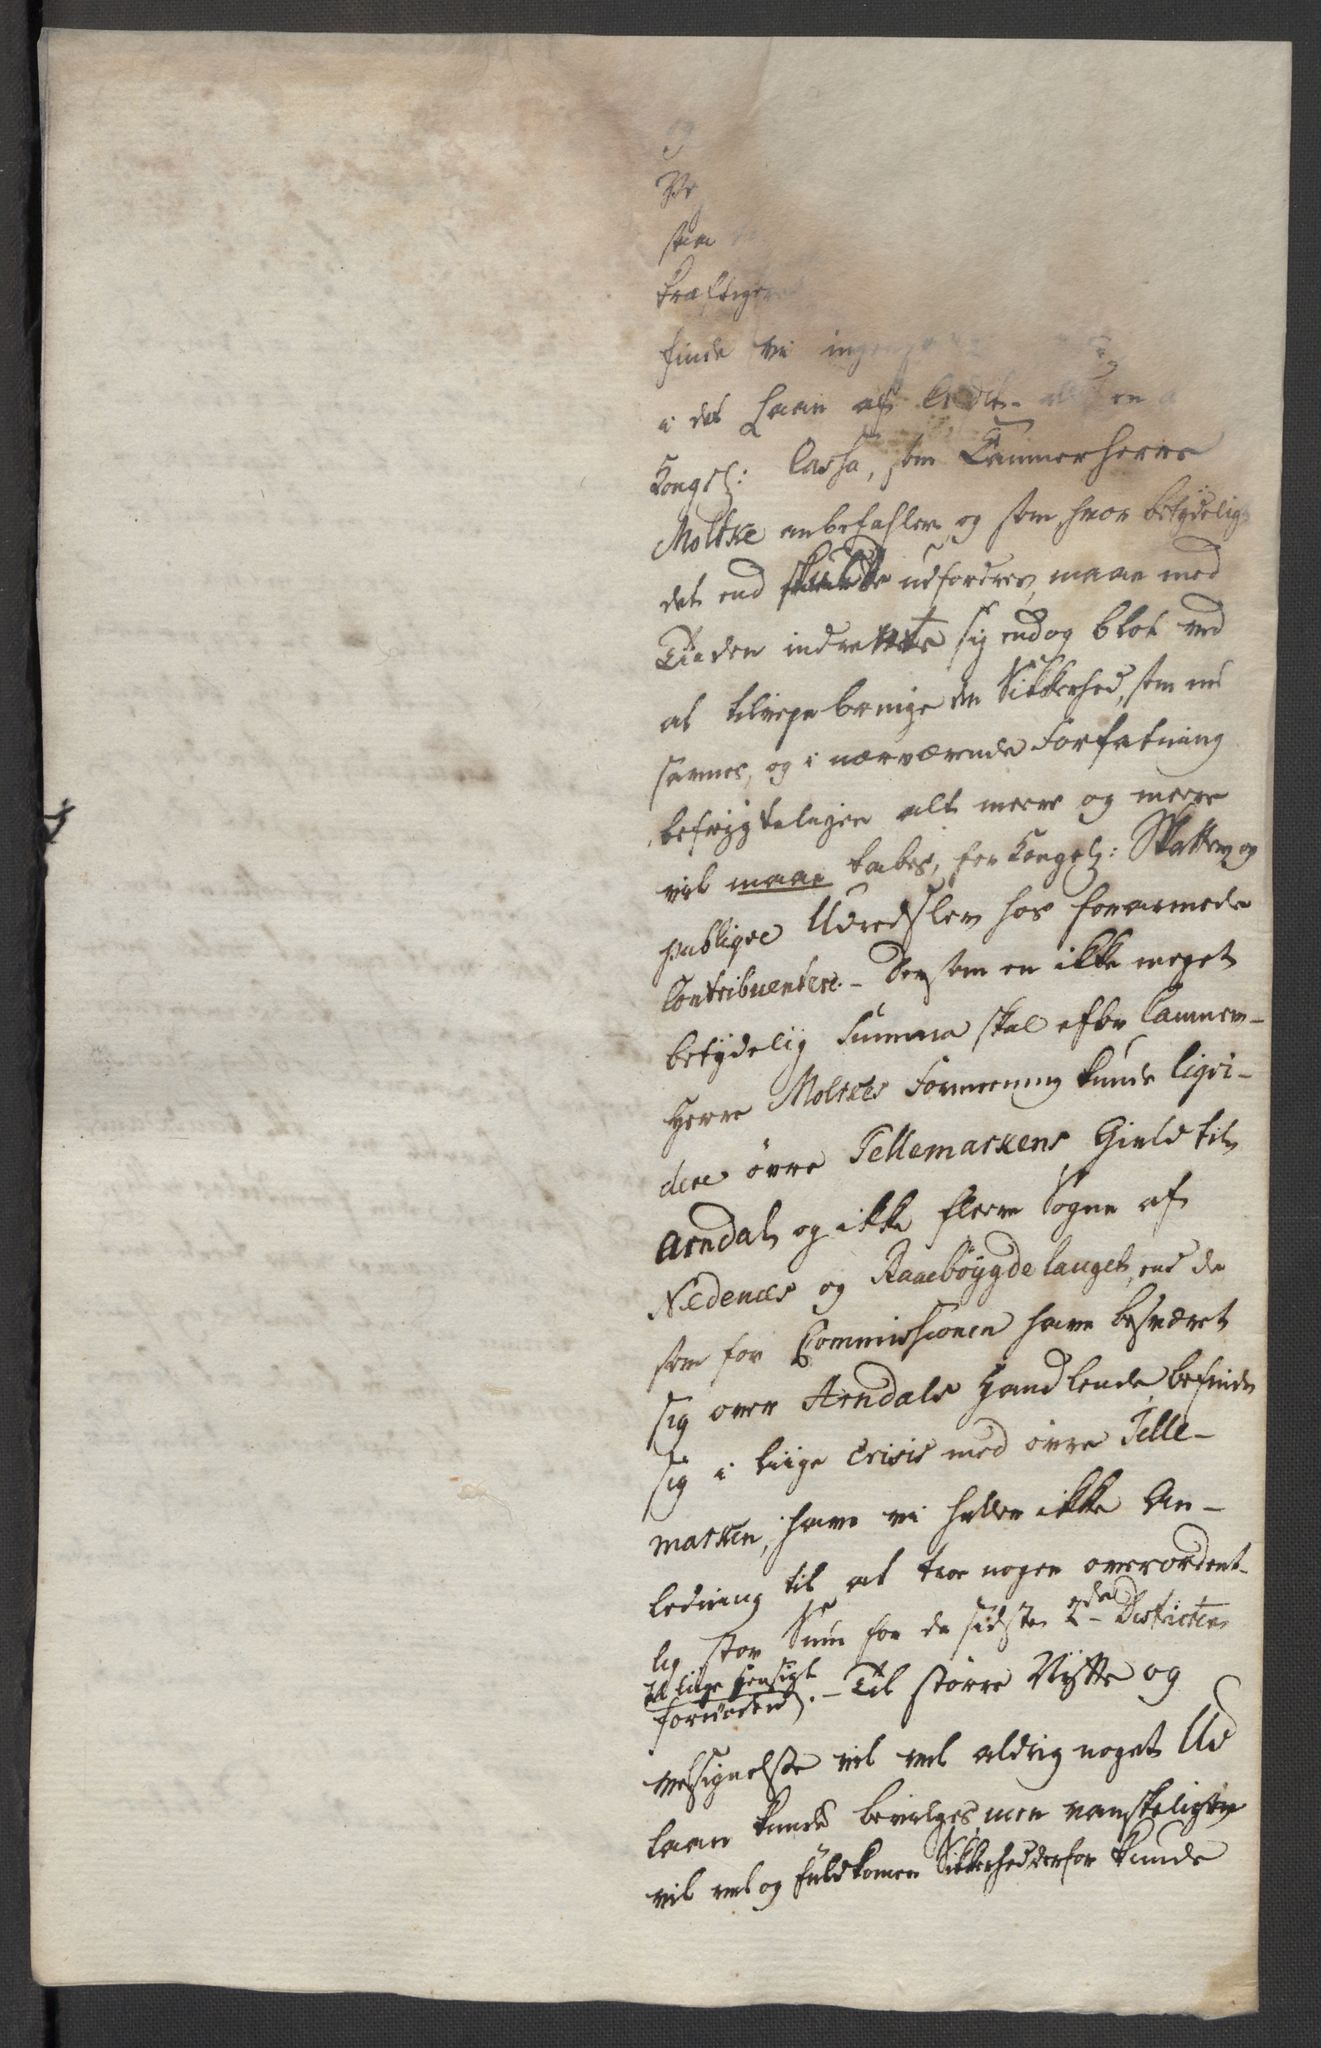 og
Ve
saa
kraftiger
finde vi ingen
i det Laan af
Kongel: Cassa, som Cammerherre
Moltke anbefahler, og som, hvor betydeligt
det end skulde udfordres, maae med
Tiiden indrettes sig endog blot ved
at tilveye bringe den Sikkerhed, som nu
savnes, og i nærværende Forfatning
befrygtelugen alt meere og meere
vil maae tabes, for Kongel: Skatter og
publiqve Udredsler hos forarmede
Contribuentere. - Dersom en ikke meget
betydelig Summa skal efter Cammer-
Herre Moltkes Formeening kunde liqvi-
dere övre Tellemarkens Gield til
Arndal, og ikke fleere Sogne af
Nedenæs og Raaebøygdelauget, end de
som for Commissionen have besværet
sig over Arndals Handlende, befinde
sig i liige Crisis med övre Telle-
marken, have vi heller ikke An-
ledning til at troe nogen overordent-
lig stor Sum for de sidste 2de Districter
til liige Hensigt
fornöden. - Til större Nytte og
velsignelse vil vel aldrig noget Ud
laan kunde bevilges, men vanskeligere
vil vel og fuldkomen Sikkerhed derfor kunde